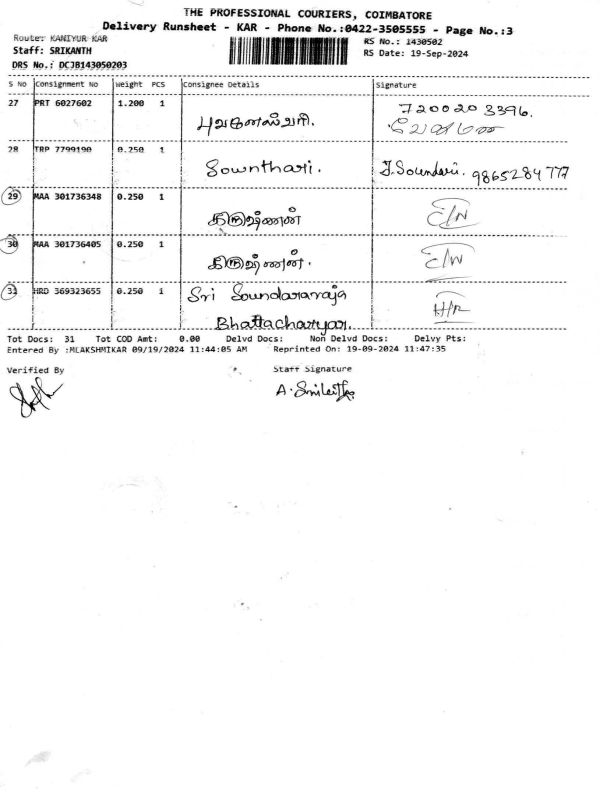 THE PROFESSIONAL COURIERS, COIMBATORE
Delivery Runsheet - KAR - Phone No.:0422-3505555 - Page No.:3
Route: KANIYUR KAR
RS No.: 1430502
Staff: SRIKANTH
RS Date: 19-Sep-2024
DRS No.: DCJB143050203
S No Consignment No Weight PCS Consignee Details Signature
27 PRT 6027602 1.200 1 புவனேஸ்வரி. 7200203396.
28 TRP 7799190 0.250 1 Sownthari. J. Sounderi. 9865284777
29 MAA 301736348 0.250 1 கிருஷ்ணன்
30 MAA 301736405 0.250 1 கிருஷ்ணன்.
31 HRD 369323655 0.250 1 Sri Soundararaja
Bhattachariyar.
Tot Docs: 31 Tot COD Amt: 0.00 Delvd Docs: Non Delvd Docs: Delvy Pts:
Entered By :MLAKSHMIKAR 09/19/2024 11:44:05 AM Reprinted On: 19-09-2024 11:47:35
Verified By Staff Signature